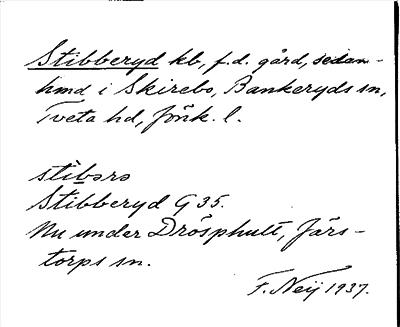 Stibberyd kb, f.d. gård, sedan-
hmd i Skirebo, Bankeryds sn,
Tveta hd, Jönk. l.
stìbərə
Stibberyd G 35.
Nu under Drösphult, Järs-
torps sn.
F. Neij 1937.